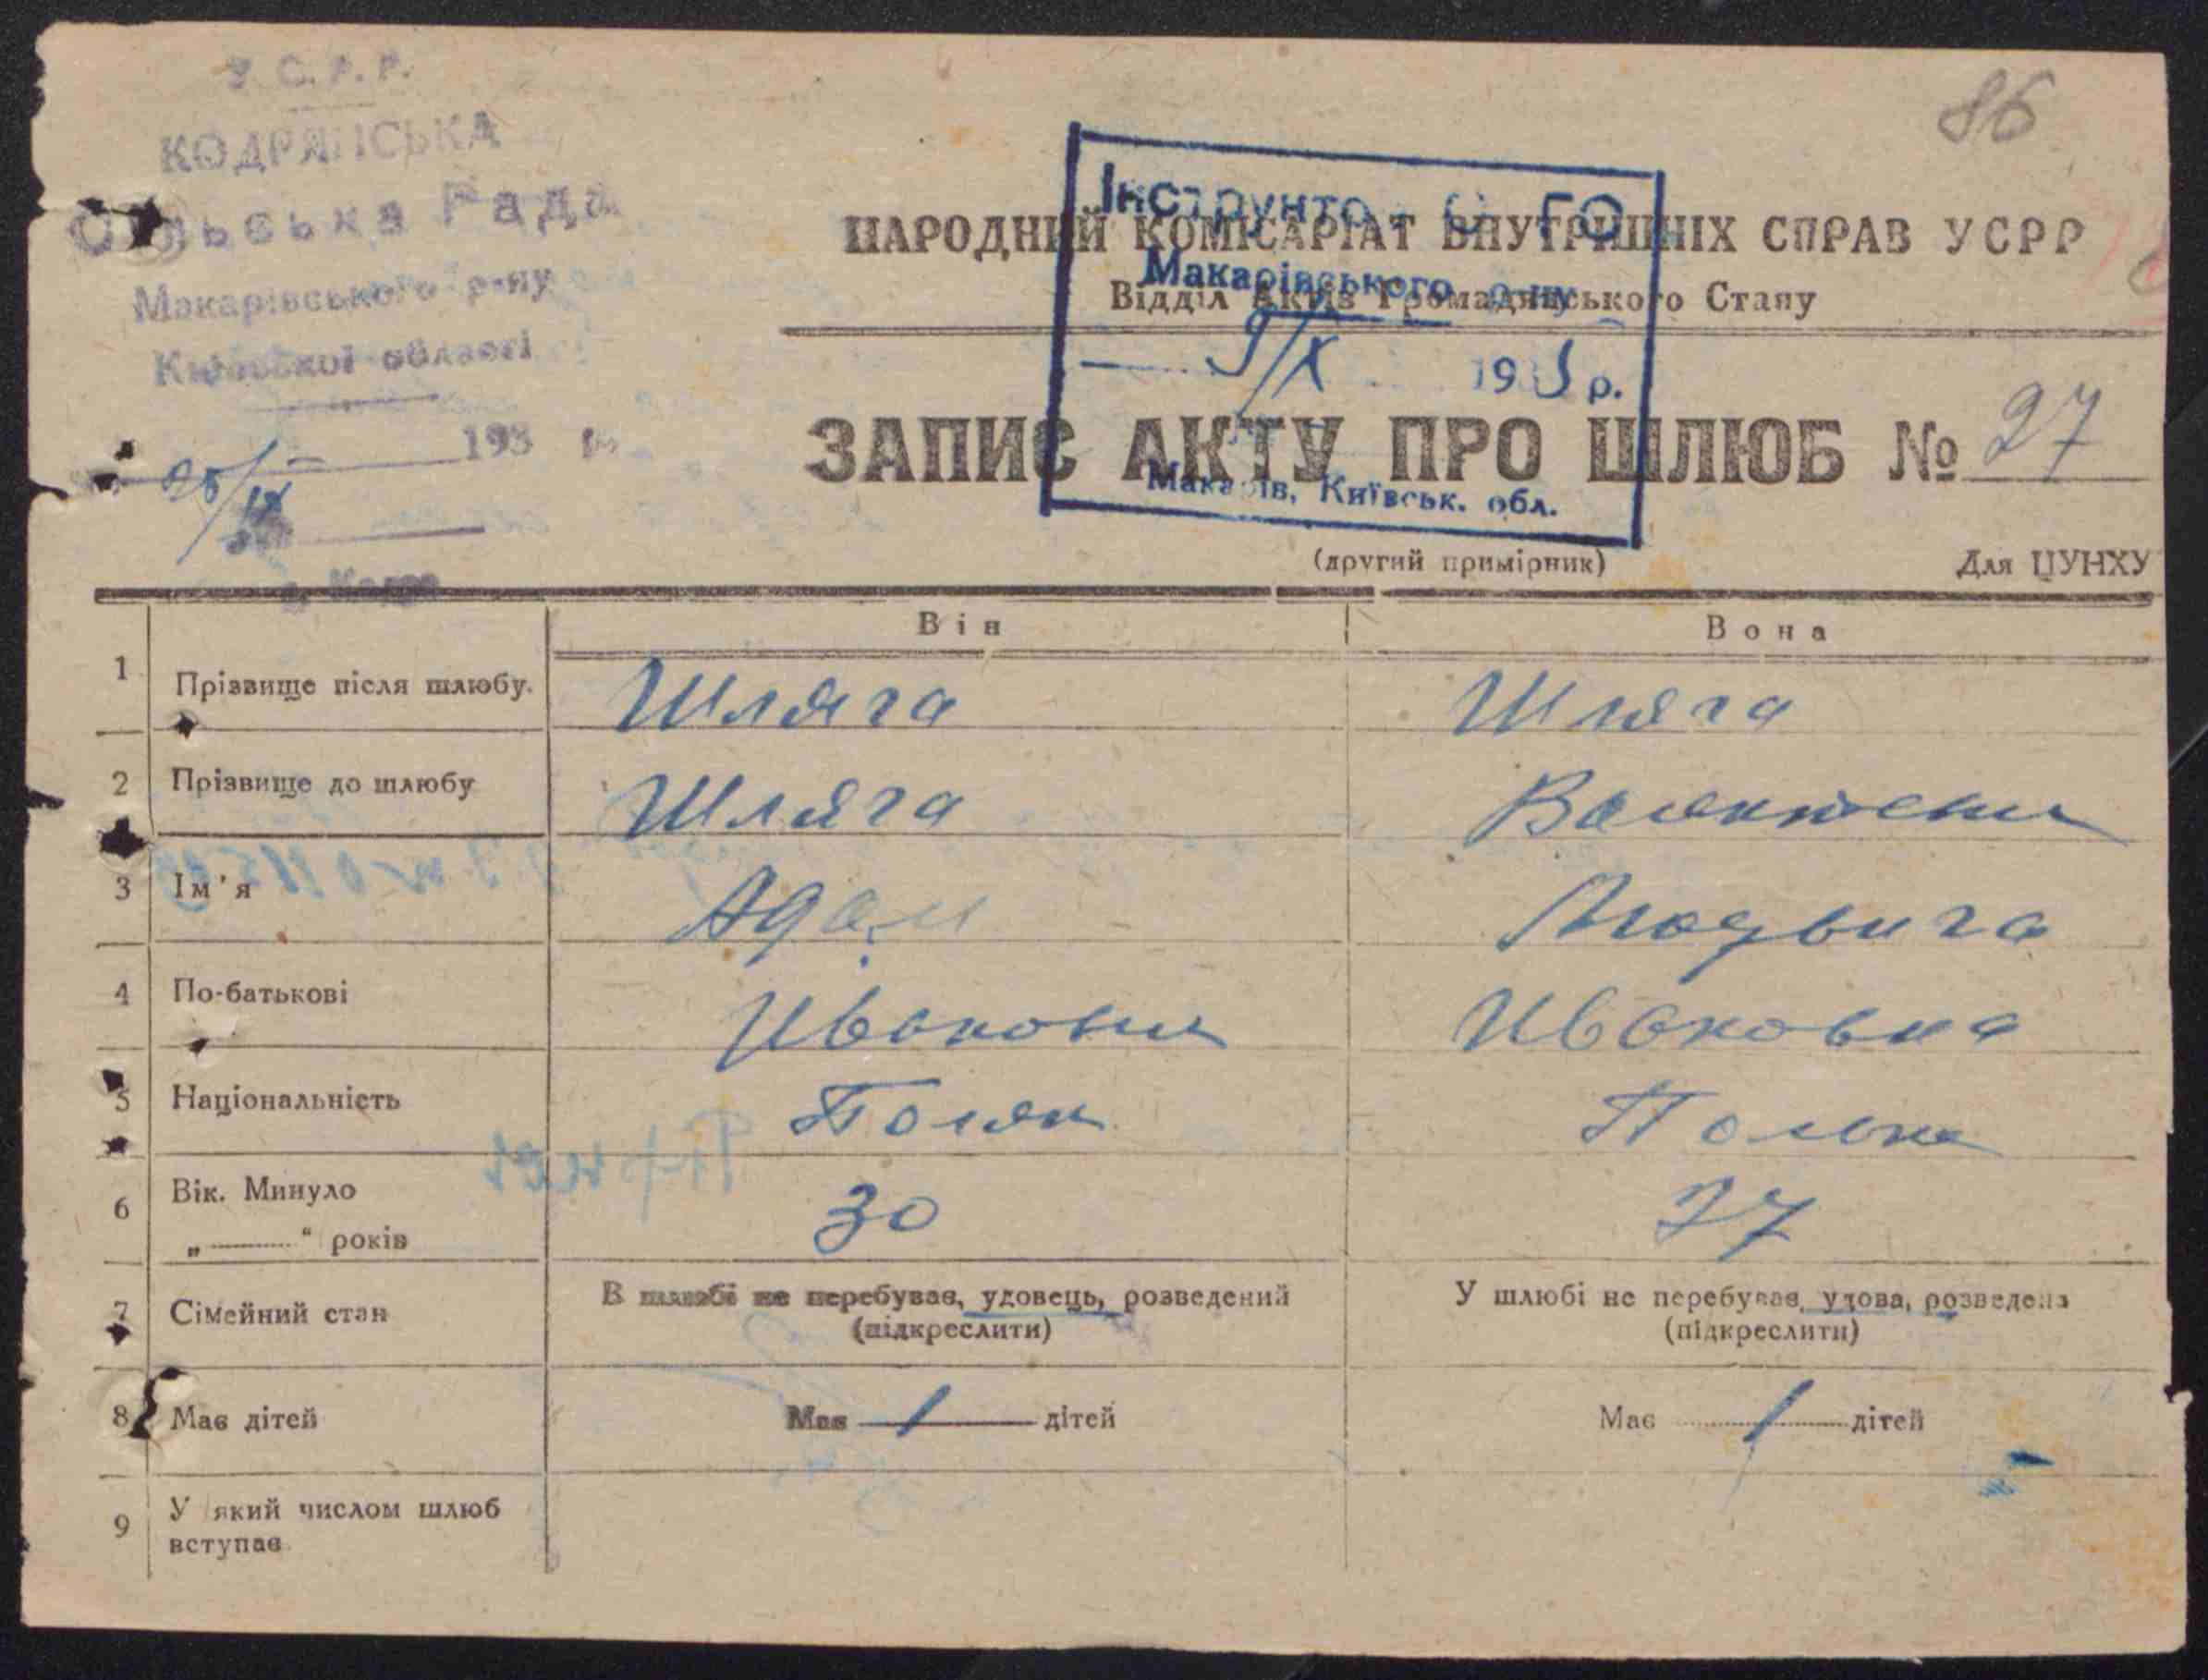 У.С.Р.Р.
КОДРЯНСЬКА
Сільська Рада
Макарівського р-ну
Київської області
25/IX 193
86
Макарівського р-ну
9/X 193 р.
Макарів, Київськ. обл.
НАРОДНИЙ КОМІСАРІАТ ВНУТРІШНІХ СПРАВ УСРР
Відділ Актів Громадянського Стану
ЗАПИС АКТУ ПРО ШЛЮБ № 27
(другий примірник) Для ЦУНХУ
Він Вона
1 Прізвище після шлюбу. Шляга Шляга
2 Прізвище до шлюбу Шляга
3 Ім'я Адам Людвига
4 По-батькові Иванович Ивановна
5 Національність Поляк Полька
6 Вік. Минуло
„ “ років 30 27
7 Сімейний стан В шлюбі не перебуває, удовець, розведений У шлюбі не перебуває, удова, розведена
(підкреслити) (підкреслити)
8 Має дітей Має 1 дітей Має 1 дітей
9 У який числом шлюб
вступає